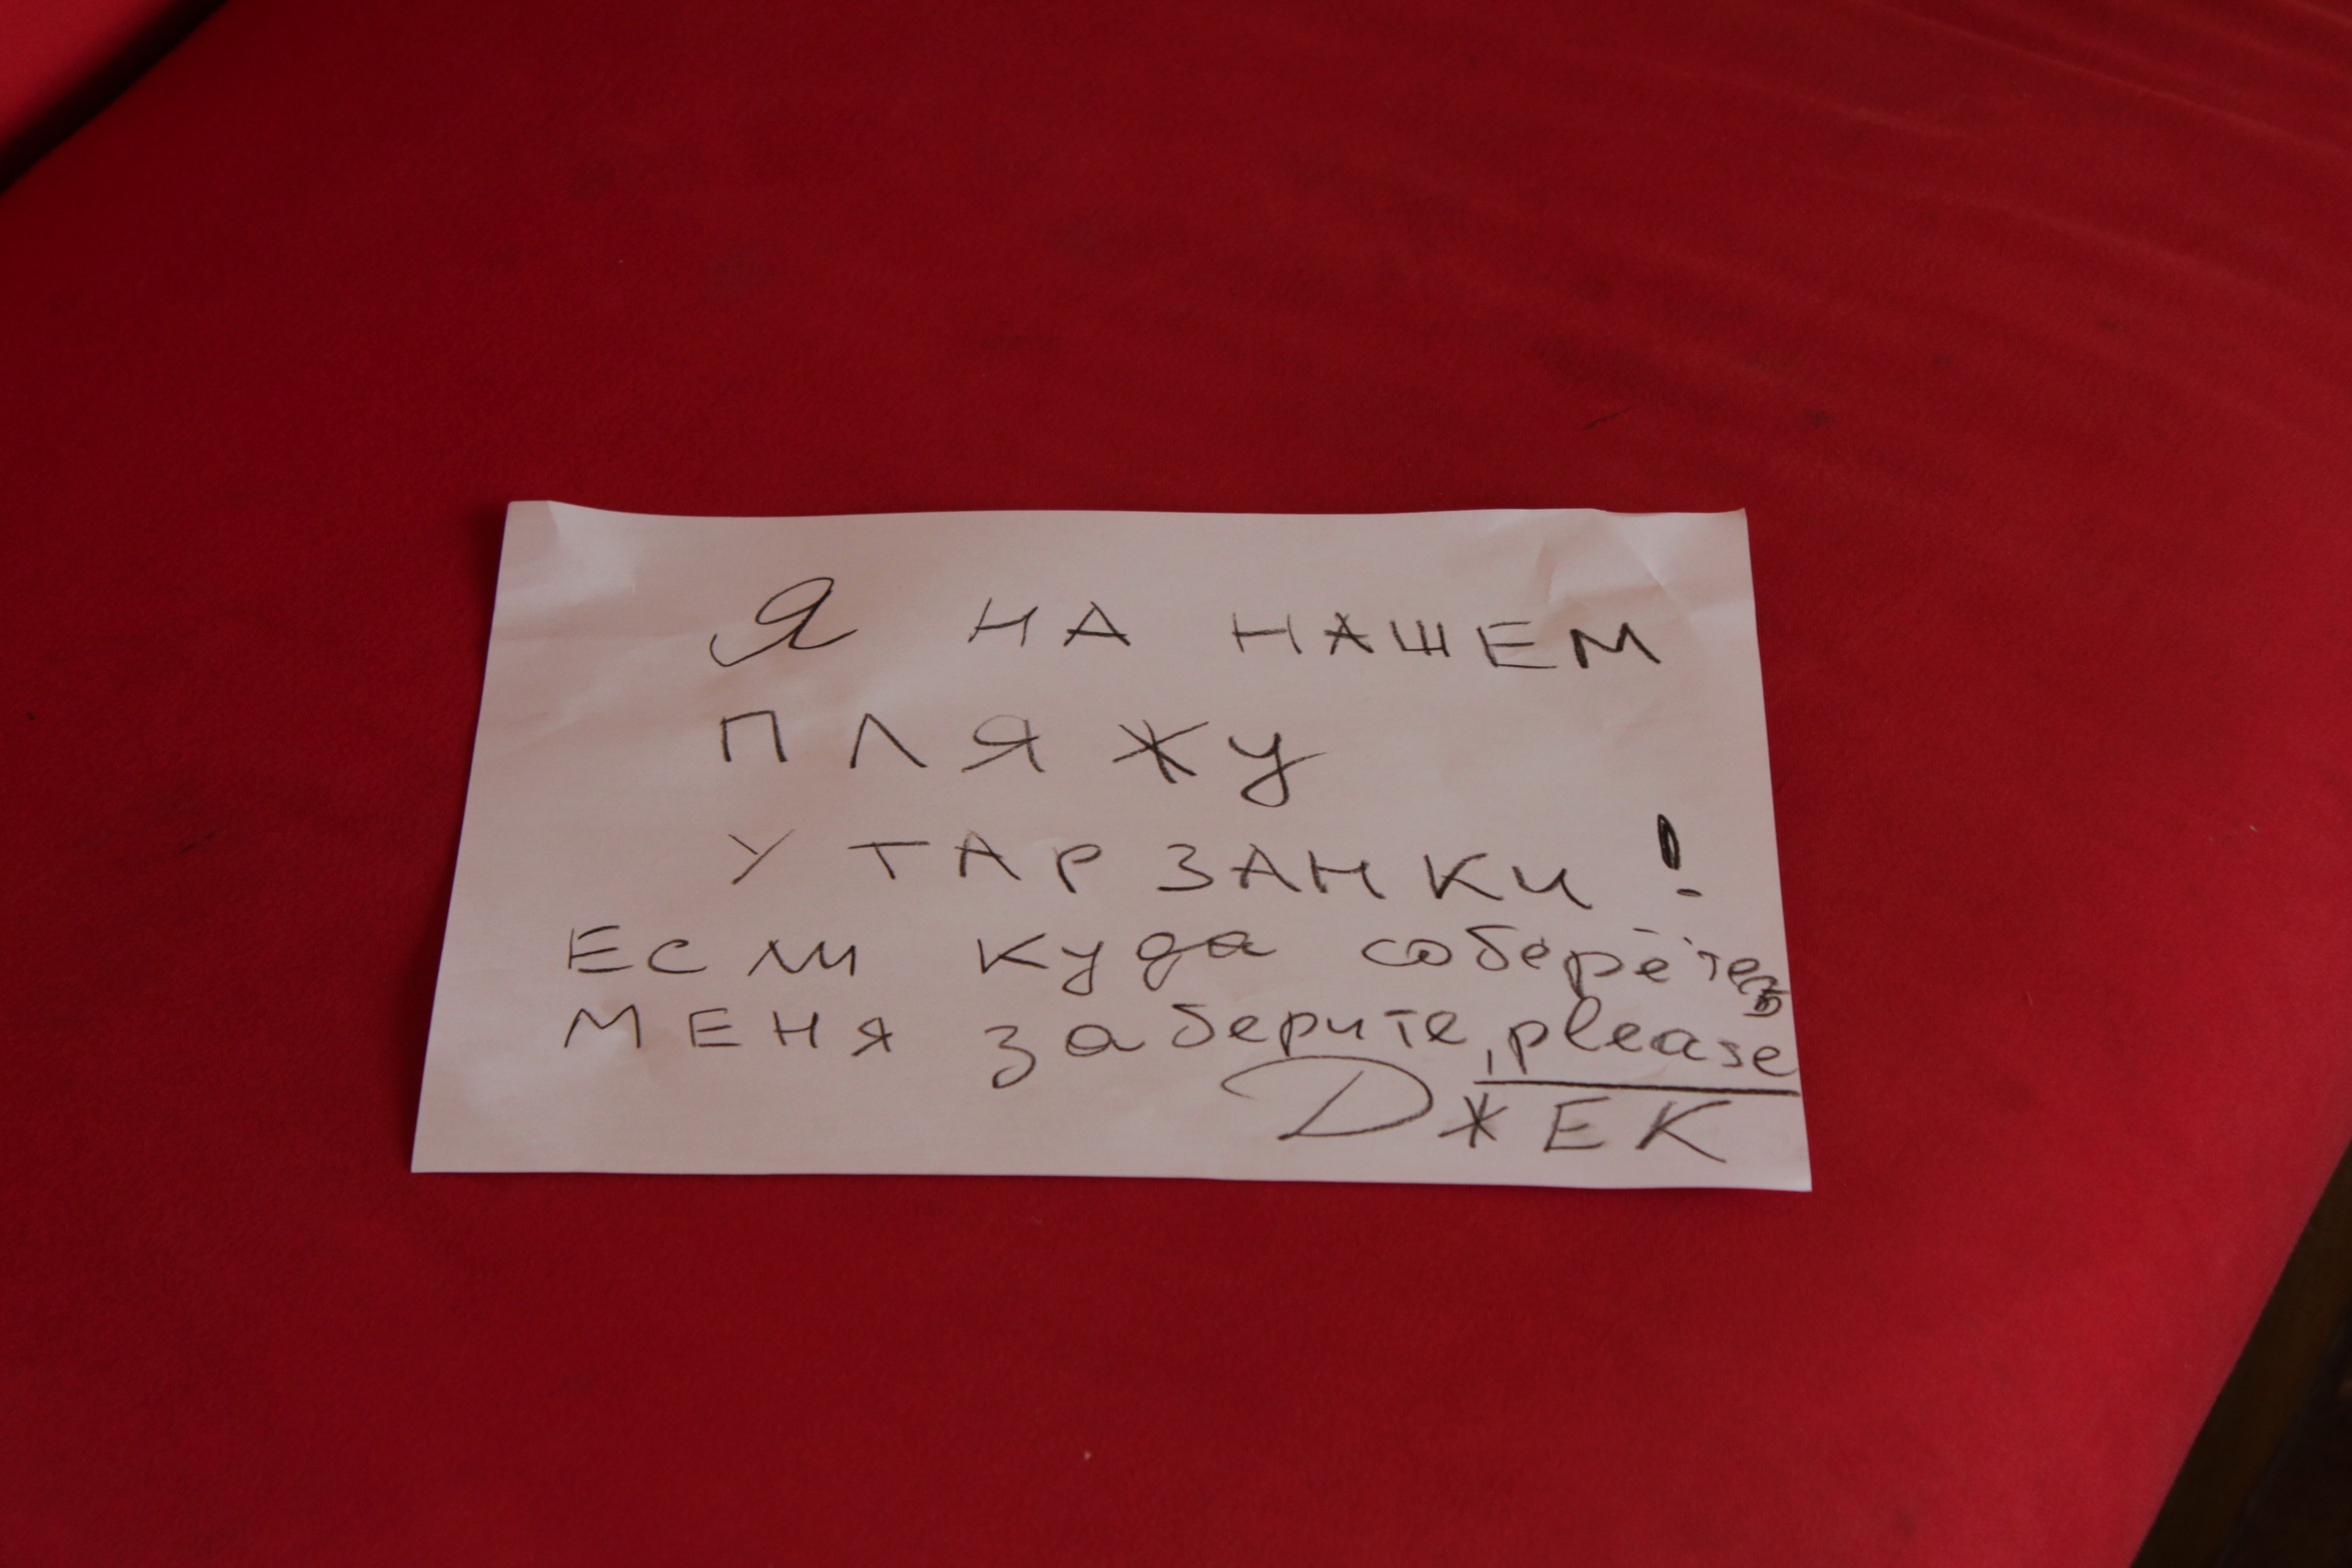 Я НА НАШЕМ
ПЛЯЖУ
У ТАРЗАНКИ!
ЕСЛИ куда соберётесь
МЕНЯ заберите, please
ДЖЕК